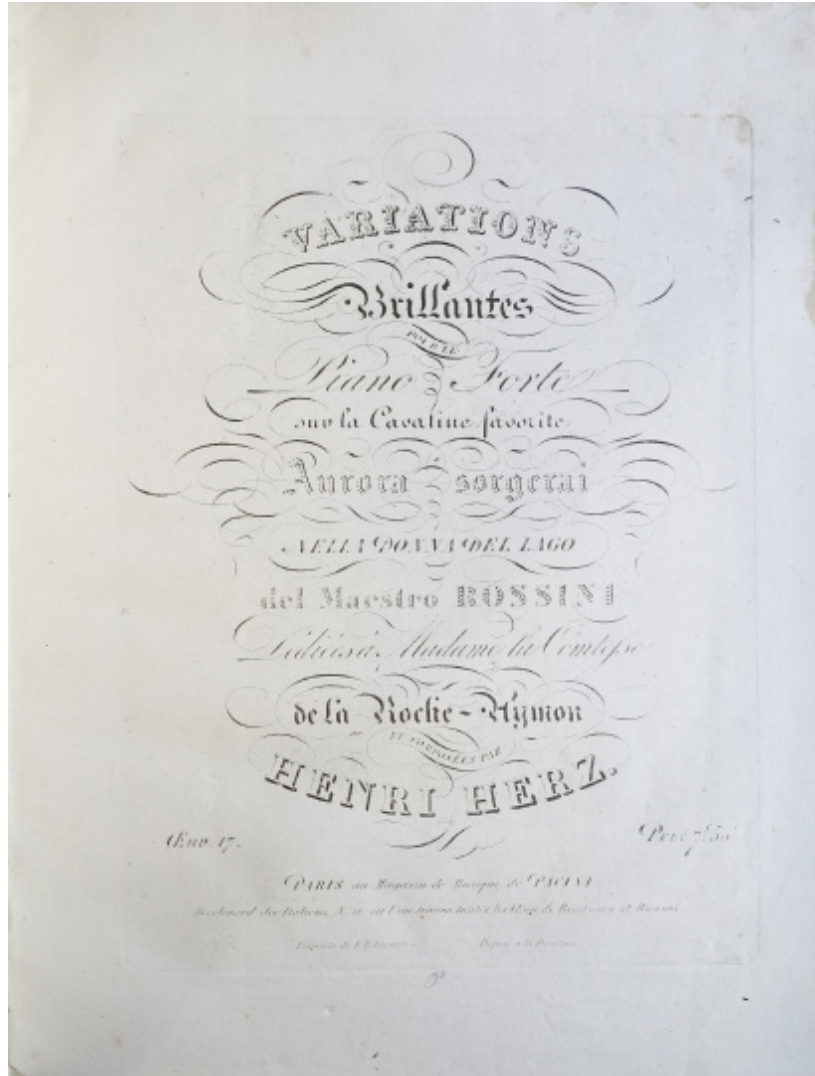 VARIATIONS
Brillantes
POUR LE
Piano Forte
sur la Cavatine favorite
Aurora sorgerai
NELLA DONNA DEL LAGO
del Maestro ROSSINI
Dédiées à Madame la Comtesse
de la Roche-Aymon
ET COMPOSÉES PAR
HENRI HERZ.
Œuv. 17.
Prix 7f 50
PARIS au Magasin de Musique de PACINI
Boulevard des Italiens, N.º 11 où l'on trouve toutes les
et Rossini
Propriété de l'Editeur
Déposé à la Direction